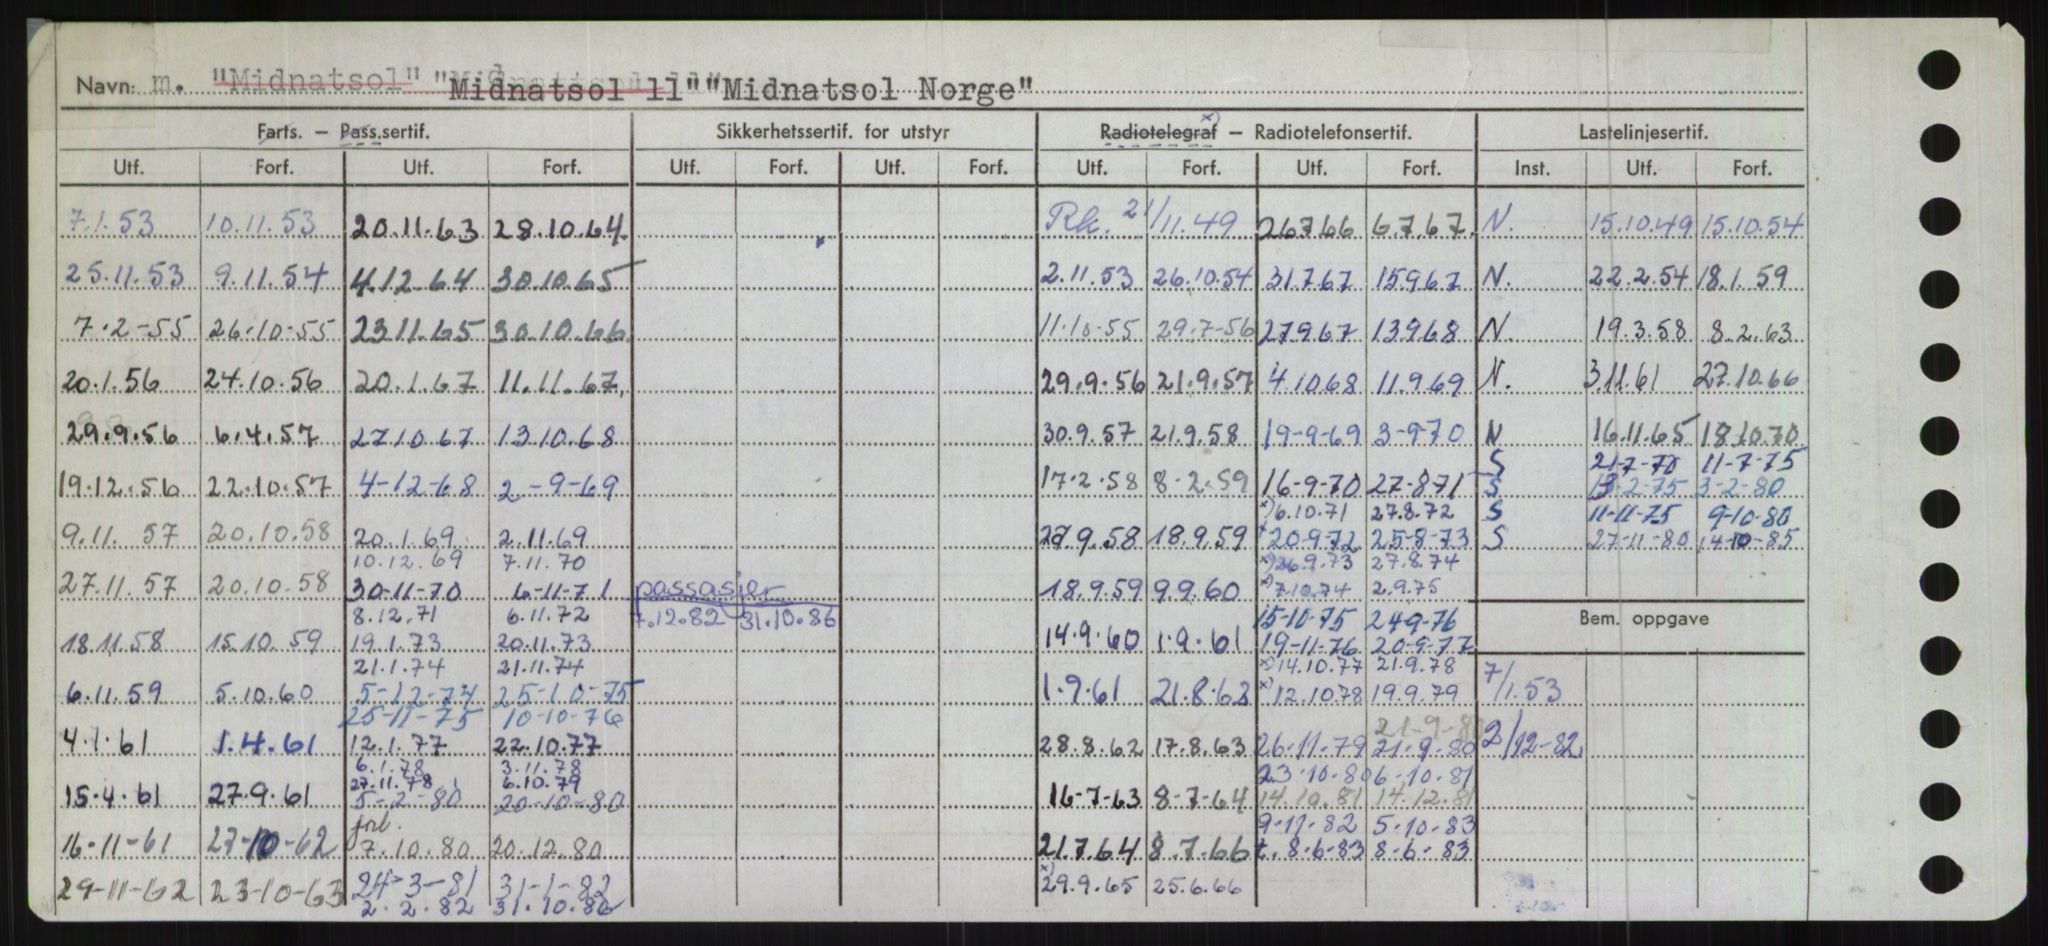 Navn: m. "Midnatsol" "Midnatsol ll" "Midnatsol Norge"
Farts. — Pass.sertif. Sikkerhetssertif. for utstyr Radiotelegraf x) — Radiotelefonsertif. Lastelinjesertif.
Utf. Forf. Utf. Forf. Utf. Forf. Utf. Forf. Utf. Forf. Utf. Forf. Inst. Utf. Forf.
7.1.53 10.11.53 20.11.63 28.10.64. Rk. 21/11.49 26766 6.7.67. N. 15.10.49 15.10.54
25.11.53 9.11.54 4.12.64 30.10.65 2.11.53 26.10.54 31.7.67 15967 N. 22.2.54 18.1.59
7.2-55 26.10-55 23.11.65 30.10.66. 11.10-55 29.7-56 27967 13968 N. 19.3.58 8.2.63
20.1.56 24.10.56 20.1.67 11.11.67. 29.9.56 21.9.57 4.1068 11.969 N. 3.11.61 27.10.66
29.9.56 6.4.57 27.10.67 13.10.68 30.9.57 21.9.58 19-9-69 3-9-70 N 16.11.65 18.10.70
S 21-7-70 11-7-75
19.12.56 22.10.57 4-12-68 2-9-69 17.2.58 8.2.59 16-9-70 27-871 S 13-2-75 3-2-80
x) 6.10.71 27.8.72 S 11-11-75 9-10-80
9.11.57 20.10.58 20.1.69 2.11.69 27.9.58 18.9.59 20-9-72 25-8-73 S 27-11-80 14-10-85
10.12.69 7.11.70 x) 26.9.73 27.8.74
27.11.57 20.10.58 30-11-70 6-11-71 passasjer 18.9.59 9.9.60 x) 7.10.74 2.9.75
8.12.71 6.11.72 7.12.82 31.10.86 15-10-75 249-76 Bem. oppgave
18.11.58 15.10.59 19.1.73 20.11.73 14.9.60 1.9.61 19-11-76 20-9-77
21.1.74 21.11.74 x) 14.10.77 21.9.78
6.11.59 5.10.60 5-12-74 25-10-75 1.9.61 21.8.62 x) 12.1078 19.9.79 7/1.53
25-11-75 10-10-76 21-9-80
4.1.61 1.4.61 12.1.77 22.10.77 28.8.62 17.8.63 26-11-79 21-9-80 2/12-82
6.1.78 3.11.78
27.11.78 6.10.79 23.10.80 6-10.81
15.4.61 27.9.61 5-2-80 20-10-80 16-7-63 8-7-64 14.10.81 14.12.81
forl. 9-11-82 5-10-83
16-11-61 27-10-62 7.10.80 20.12.80 21.7.64 8.7.66 t. 8-6-83 8-6-83
29-11-62 23-10-63 24-3-81 31-1-82 x) 29.9.65 25.6.66
2.2.82 31.10.86